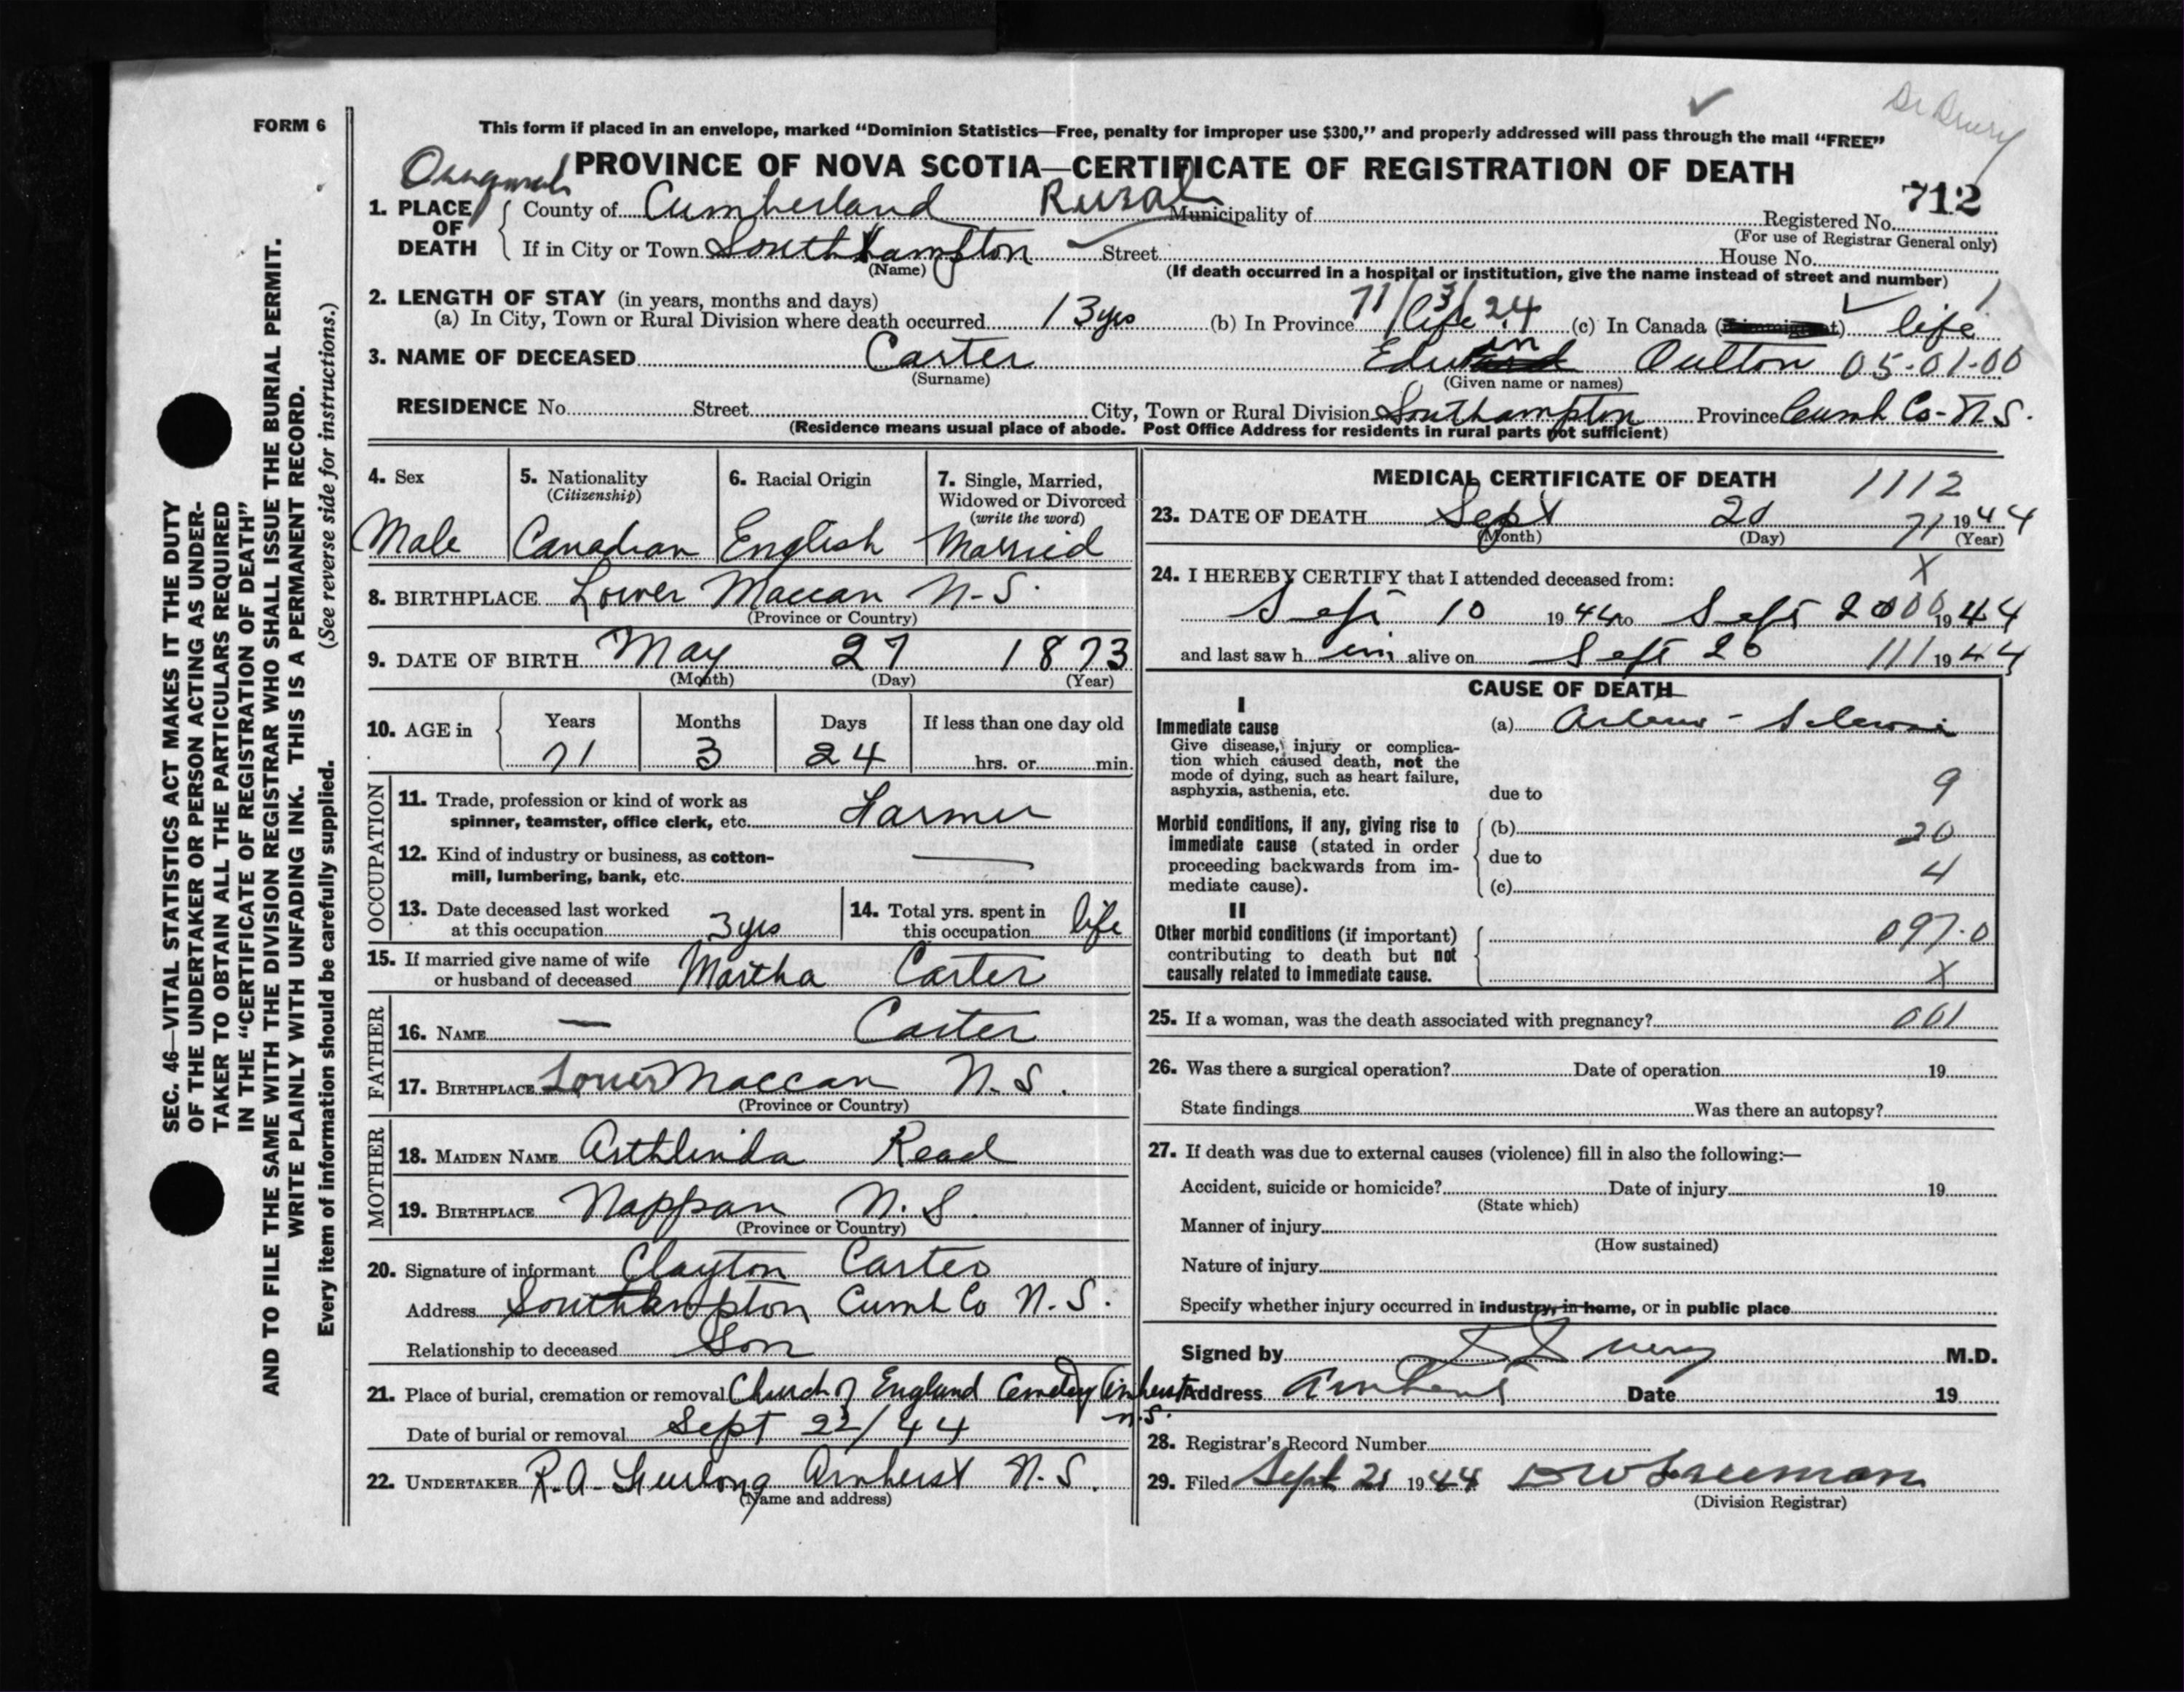 FORM 6
This form if placed in an envelope, marked “Dominion Statistics—Free, penalty for improper use $300,” and properly addressed will pass through the mail “FREE”
PROVINCE OF NOVA SCOTIA—CERTIFICATE OF REGISTRATION OF DEATH
712
1. PLACE OF DEATH
County of Cumberland Rural Municipality of Registered No.
(For use of Registrar General only)
If in City or Town Southhampton Street House No.
(Name)
(If death occurred in a hospital or institution, give the name instead of street and number)
2. LENGTH OF STAY (in years, months and days)
71/3/24
(a) In City, Town or Rural Division where death occurred 13 yrs (b) In Province life (c) In Canada life
3. NAME OF DECEASED Carter Edwin Oulton 05-01-00
(Surname) (Given name or names)
RESIDENCE No. Street City, Town or Rural Division Southampton Province Cumb Co-N.S.
(Residence means usual place of abode. Post Office Address for residents in rural parts not sufficient)
4. Sex
Male
5. Nationality
(Citizenship)
Canadian
6. Racial Origin
English
7. Single, Married, Widowed or Divorced
(write the word)
Married
8. BIRTHPLACE Lower Maccan N-S.
(Province or Country)
9. DATE OF BIRTH May 27 1873
(Month) (Day) (Year)
10. AGE in Years Months Days If less than one day old
71 3 24 hrs. or min.
OCCUPATION
11. Trade, profession or kind of work as
spinner, teamster, office clerk, etc. Farmer
12. Kind of industry or business, as cotton-
mill, lumbering, bank, etc.
13. Date deceased last worked
at this occupation 3 yrs
14. Total yrs. spent in
this occupation life
15. If married give name of wife
or husband of deceased Martha Carter
FATHER
16. NAME — Carter
17. BIRTHPLACE Lower Maccan N.S.
(Province or Country)
MOTHER
18. MAIDEN NAME Arthlinda Read
19. BIRTHPLACE Nappan N.S.
(Province or Country)
20. Signature of informant Clayton Carter
Address Southampton Cumb Co N.S.
Relationship to deceased Son
21. Place of burial, cremation or removal Church of England Cemetery Amherst
N.S.
Date of burial or removal Sept 22/44
22. UNDERTAKER R.A. Furlong Amherst N.S.
(Name and address)
MEDICAL CERTIFICATE OF DEATH 1112
23. DATE OF DEATH Sept 20 71 1944
(Month) (Day) (Year)
X
24. I HEREBY CERTIFY that I attended deceased from:
Sept 10 1944 to Sept 20 1944
and last saw him alive on Sept 20 111 1944
CAUSE OF DEATH
I
Immediate cause (a)
Give disease, injury or complica-
tion which caused death, not the
mode of dying, such as heart failure,
asphyxia, asthenia, etc.
due to 9
Morbid conditions, if any, giving rise to
immediate cause (stated in order
proceeding backwards from im-
mediate cause).
(b) 20
due to 4
(c)
II
Other morbid conditions (if important)
contributing to death but not
causally related to immediate cause.
097.0
X
25. If a woman, was the death associated with pregnancy? 001
26. Was there a surgical operation? Date of operation 19
State findings Was there an autopsy?
27. If death was due to external causes (violence) fill in also the following:—
Accident, suicide or homicide? Date of injury 19
(State which)
Manner of injury
(How sustained)
Nature of injury
Specify whether injury occurred in industry, in home, or in public place
Signed by M.D.
Address Amherst Date 19
28. Registrar's Record Number
29. Filed Sept 21 1944
(Division Registrar)
SEC. 46—VITAL STATISTICS ACT MAKES IT THE DUTY
OF THE UNDERTAKER OR PERSON ACTING AS UNDER-
TAKER TO OBTAIN ALL THE PARTICULARS REQUIRED
IN THE “CERTIFICATE OF REGISTRATION OF DEATH”
AND TO FILE THE SAME WITH THE DIVISION REGISTRAR WHO SHALL ISSUE THE BURIAL PERMIT.
WRITE PLAINLY WITH UNFADING INK. THIS IS A PERMANENT RECORD.
Every item of information should be carefully supplied. (See reverse side for instructions.)